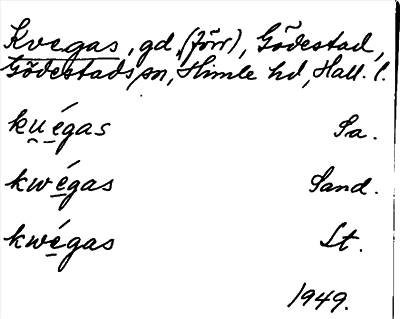 Kvegas, gd, (förr), Gödestad,
Gödestads sn, Himle hd, Hall. l.
ku̯é̱gas Sa.
kwé̱gas Sand.
kwé̱gas Lt.
1949.